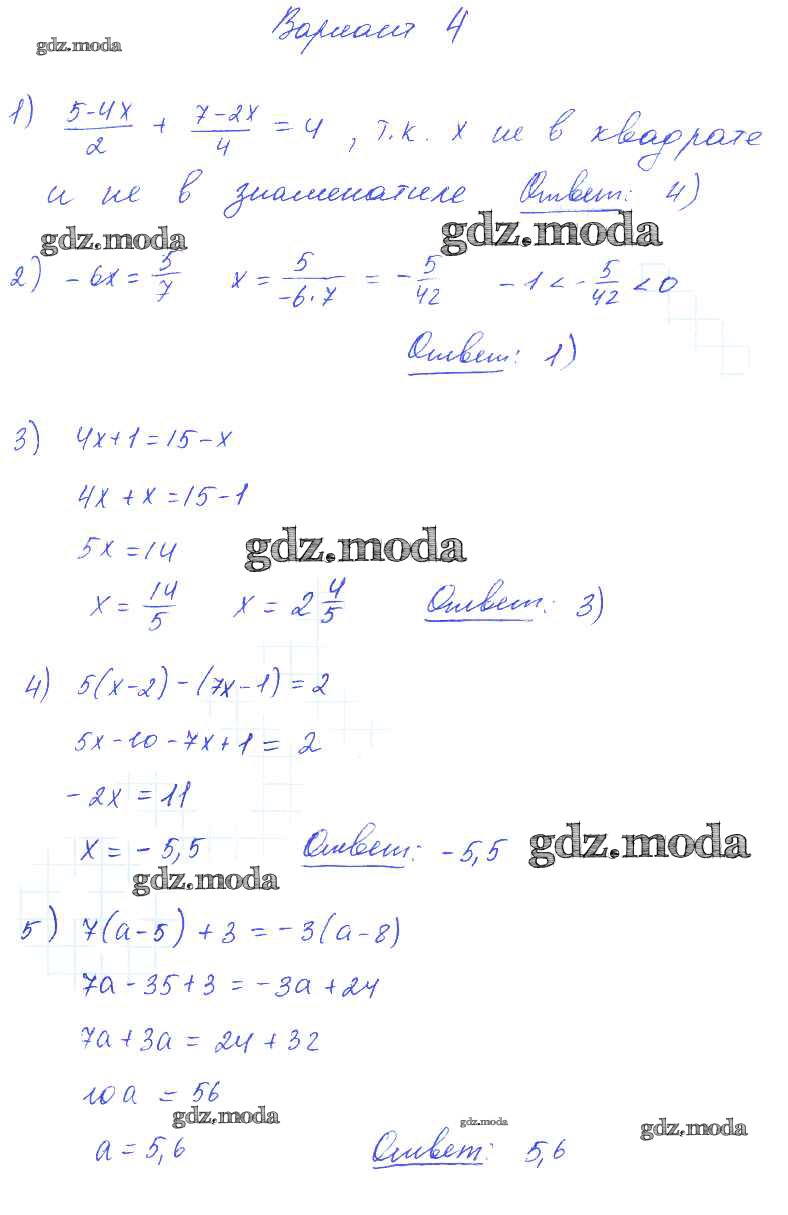 Вариант 4
gdz.moda
1) (5-4x)/2 + (7-2x)/4 = 4, т.к. x не в квадрате
и не в знаменателе Ответ: 4)
gdz.moda gdz.moda
2) -6x = 5/7 x = 5/(-6·7) = -5/42 -1 < -5/42 < 0
Ответ: 1)
3) 4x+1=15-x
4x+x=15-1
5x=14
gdz.moda
x = 14/5 x = 2 4/5 Ответ: 3)
4) 5(x-2)-(7x-1)=2
5x-10-7x+1=2
-2x=11
x=-5,5 Ответ: -5,5 gdz.moda
gdz.moda
5) 7(a-5)+3=-3(a-8)
7a-35+3=-3a+24
7a+3a=24+32
10a=56
gdz.moda gdz.moda gdz.moda
a=5,6 Ответ: 5,6